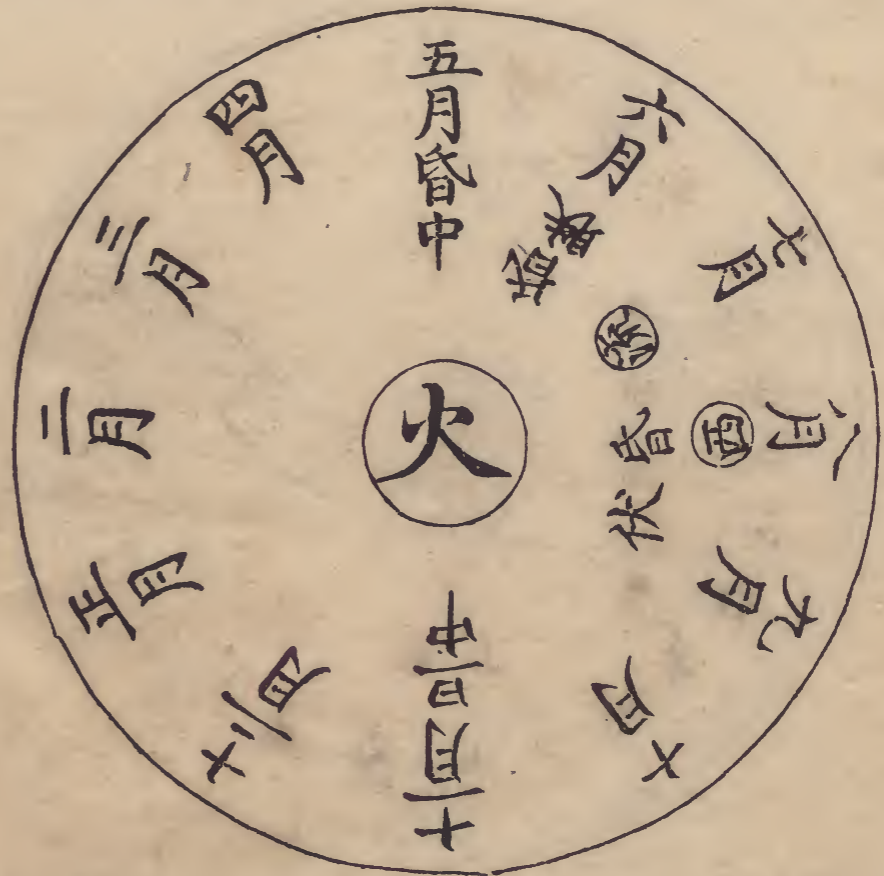 五月昏中
六月
七月
八月
西
昏伏
九月
十月
十一月旦中
十二月
正月
二月
三月
四月
火